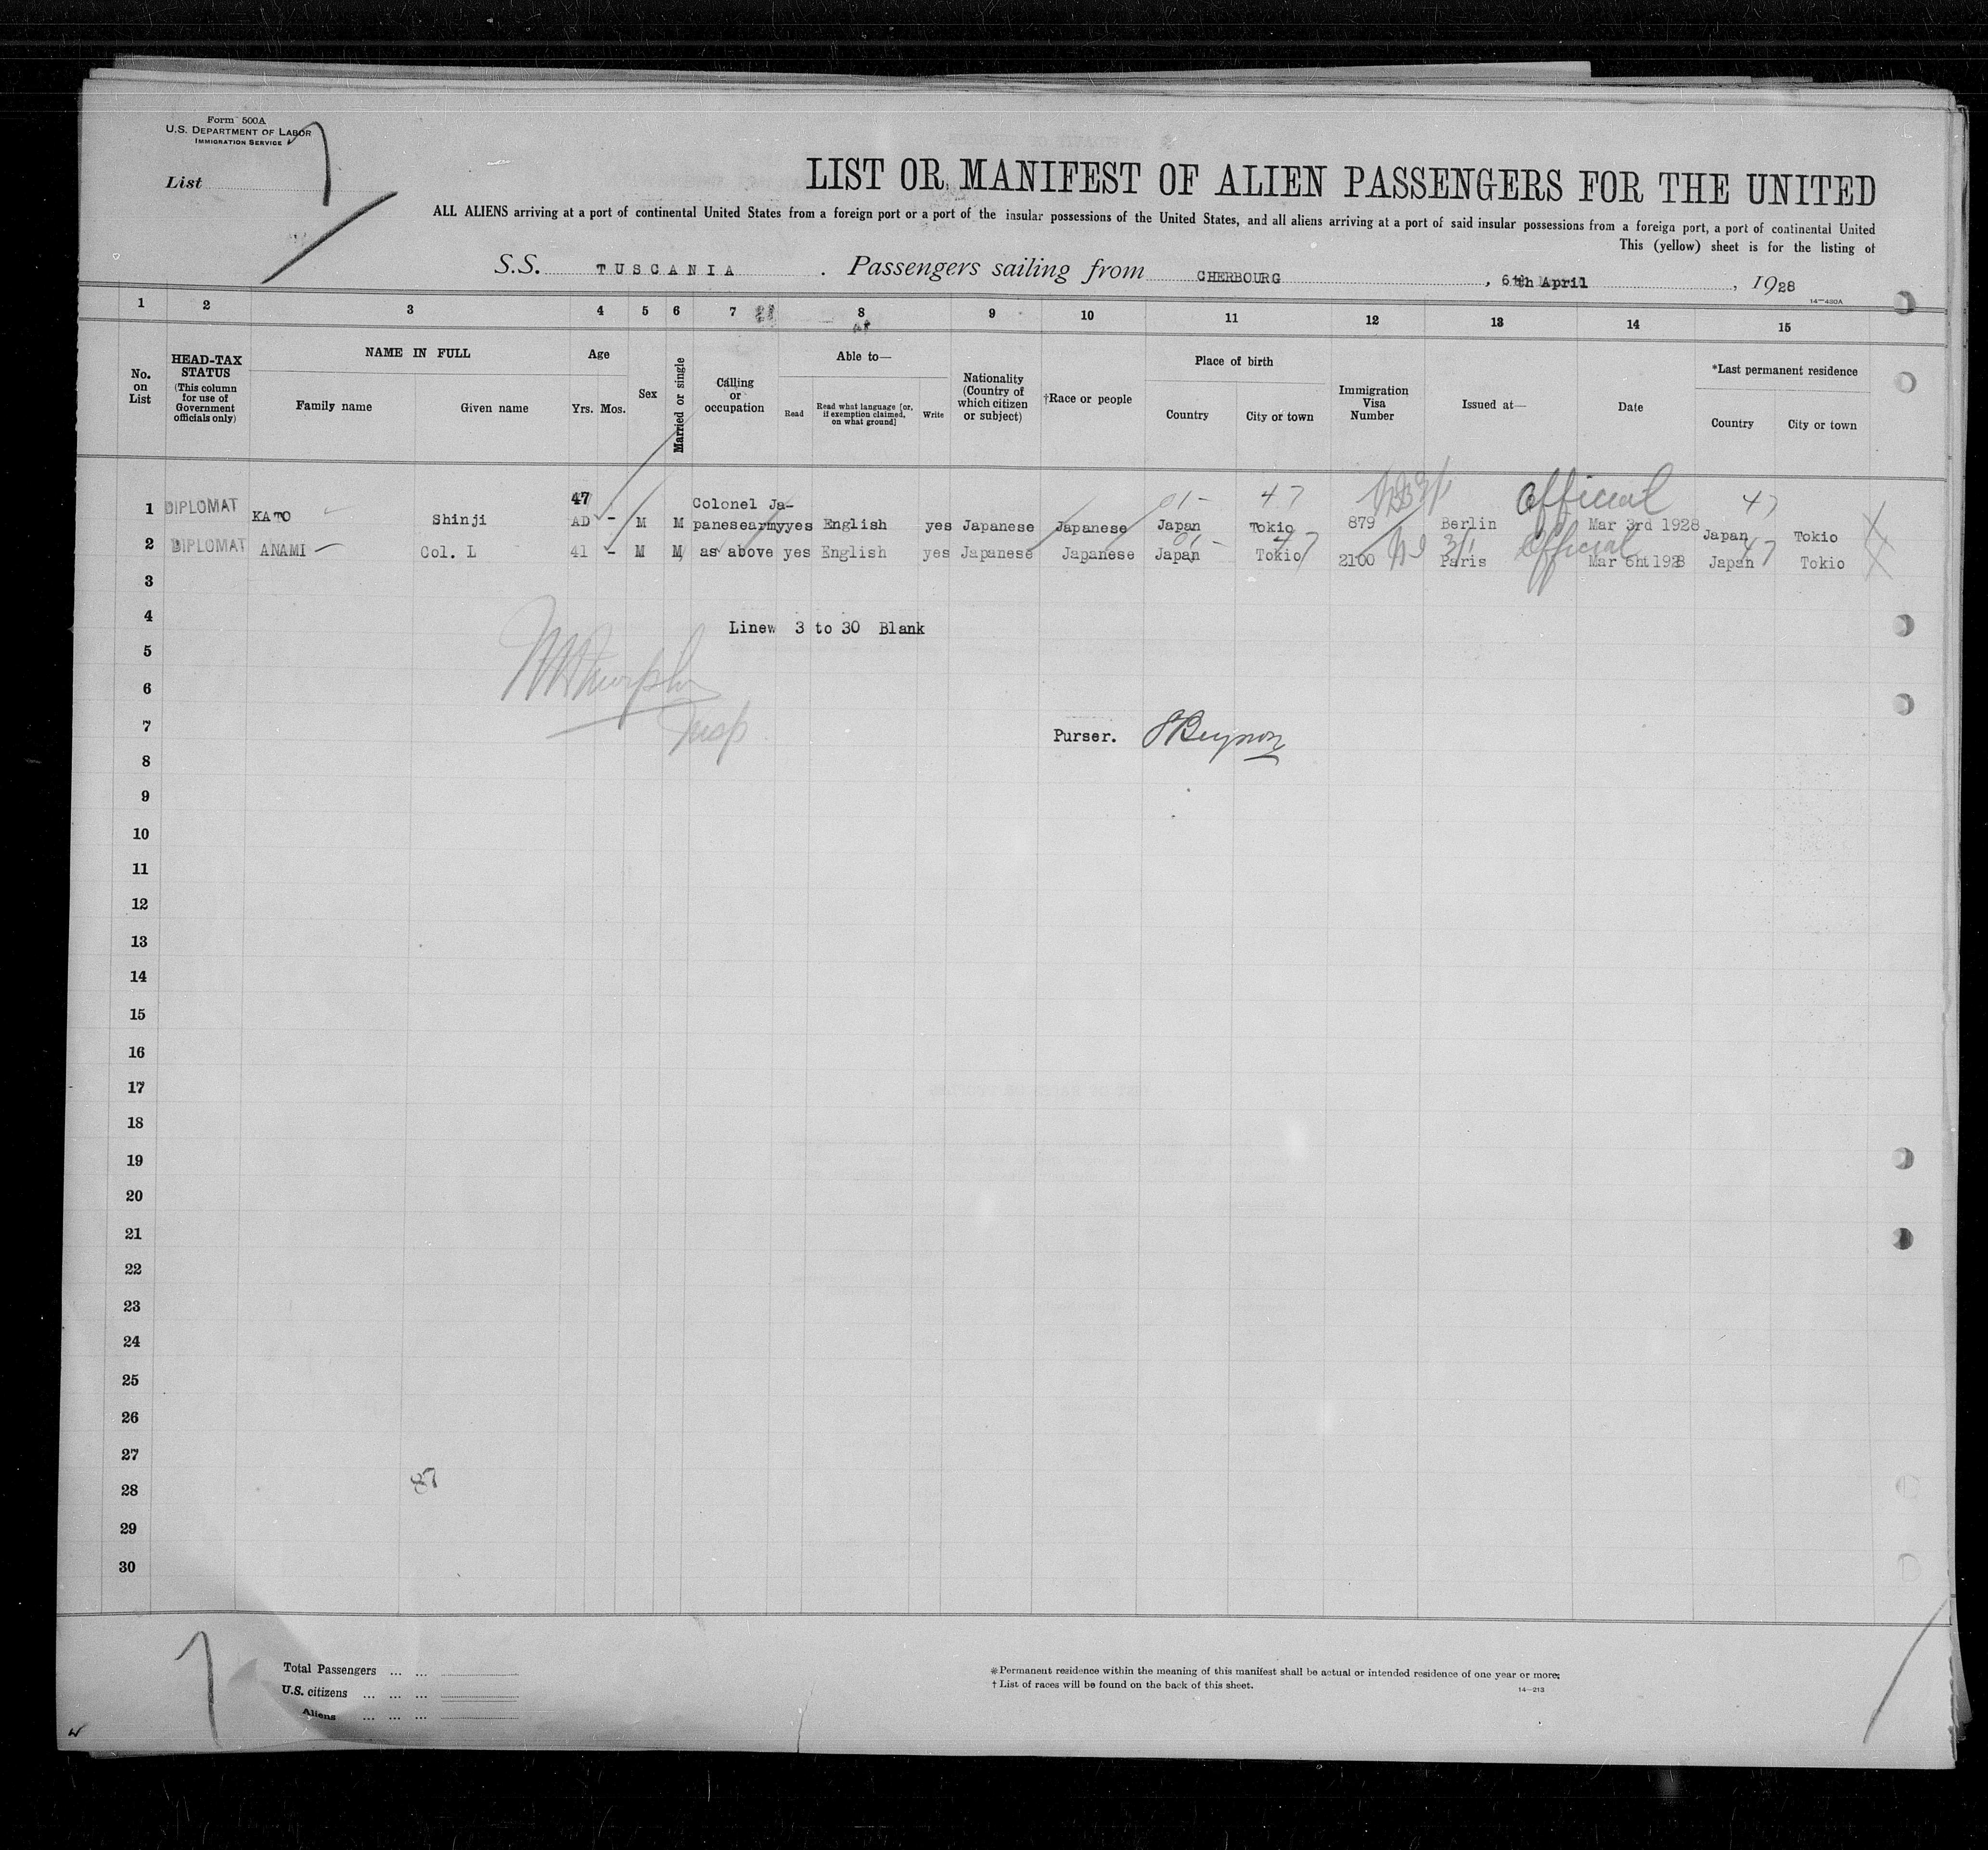 Form 500A
U.S. DEPARTMENT OF LABOR
IMMIGRATION SERVICE
List
LIST OR MANIFEST OF ALIEN PASSENGERS FOR THE UNITED
ALL ALIENS arriving at a port of continental United States from a foreign port or a port of the insular possessions of the United States, and all aliens arriving at a port of said insular possessions from a foreign port, a port of continental United
This (yellow) sheet is for the listing of
S.S. TUSCANIA . Passengers sailing from CHERBOURG , 6th April , 1928
14—430A
1 2 3 4 5 6 7 8 9 10 11 12 13 14 15
No. on List
HEAD-TAX STATUS
(This column for use of Government officials only)
NAME IN FULL
Family name Given name
Age
Yrs. Mos.
Sex
Married or single
Calling or occupation
Able to—
Read
Read what language [or, if exemption claimed, on what ground]
Write
Nationality (Country of which citizen or subject)
†Race or people
Place of birth
Country City or town
Immigration Visa Number
Issued at—
Date
*Last permanent residence
Country City or town
Official
01- 47 47
1 DIPLOMAT KATO Shinji 47 AD - M M Colonel Ja-panesearmy yes English yes Japanese Japanese Japan Tokio 879 Berlin Mar 3rd 1928 Japan Tokio
01- 47 3/1 Official 47
2 DIPLOMAT ANAMI Col. L 41 - M M as above yes English yes Japanese Japanese Japan Tokio 2100 Paris Mar 6ht 1928 Japan Tokio
3
4 Linew 3 to 30 Blank
5
6
Murphy
Insp
7 Purser.
8
9
10
11
12
13
14
15
16
17
18
19
20
21
22
23
24
25
26
27
87
28
29
30
Total Passengers ... ...
U.S. citizens ... ... ...
Aliens ... ... ...
*Permanent residence within the meaning of this manifest shall be actual or intended residence of one year or more.
† List of races will be found on the back of this sheet.
14—213